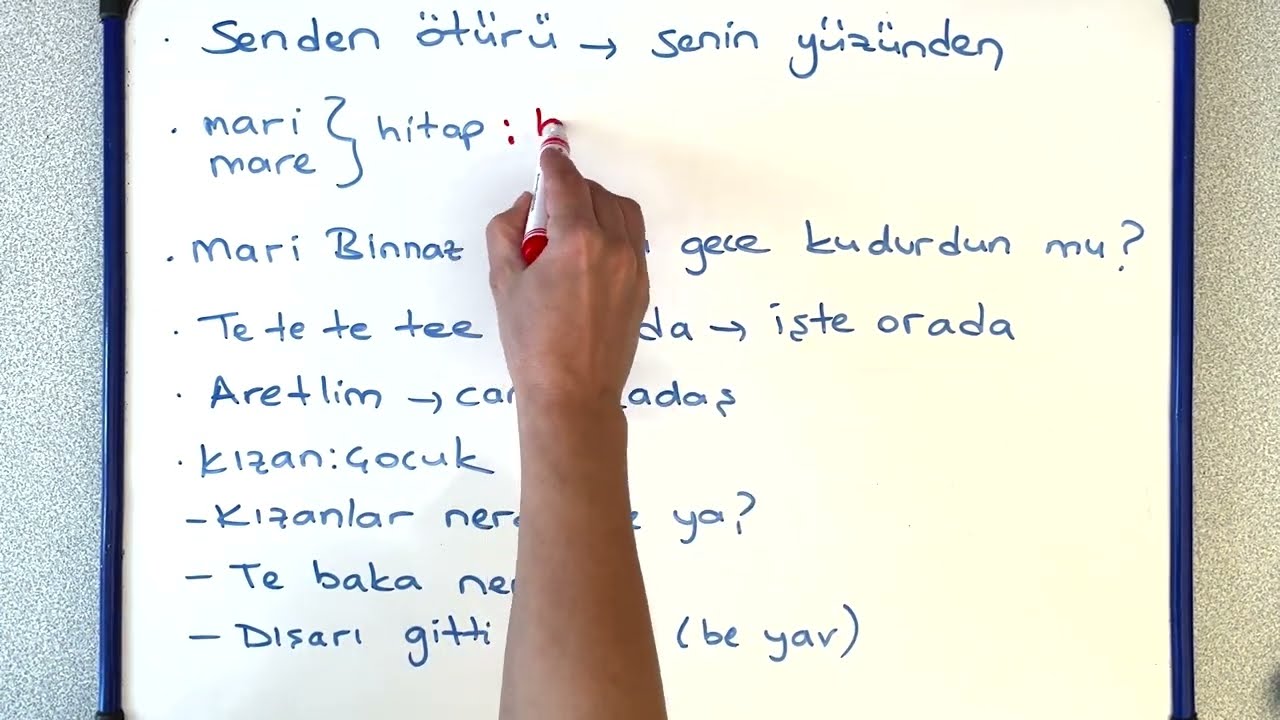 · Senden ötürü → senin yüzünden
· mari } hitap :
mare
· Mari Binnaz gece kudurdun mu?
· Te te te tee → işte orada
· Aretlim →
· Kızan: Çocuk
- Kızanlar ya?
- Te baka
- Dışarı gitti (be yav)